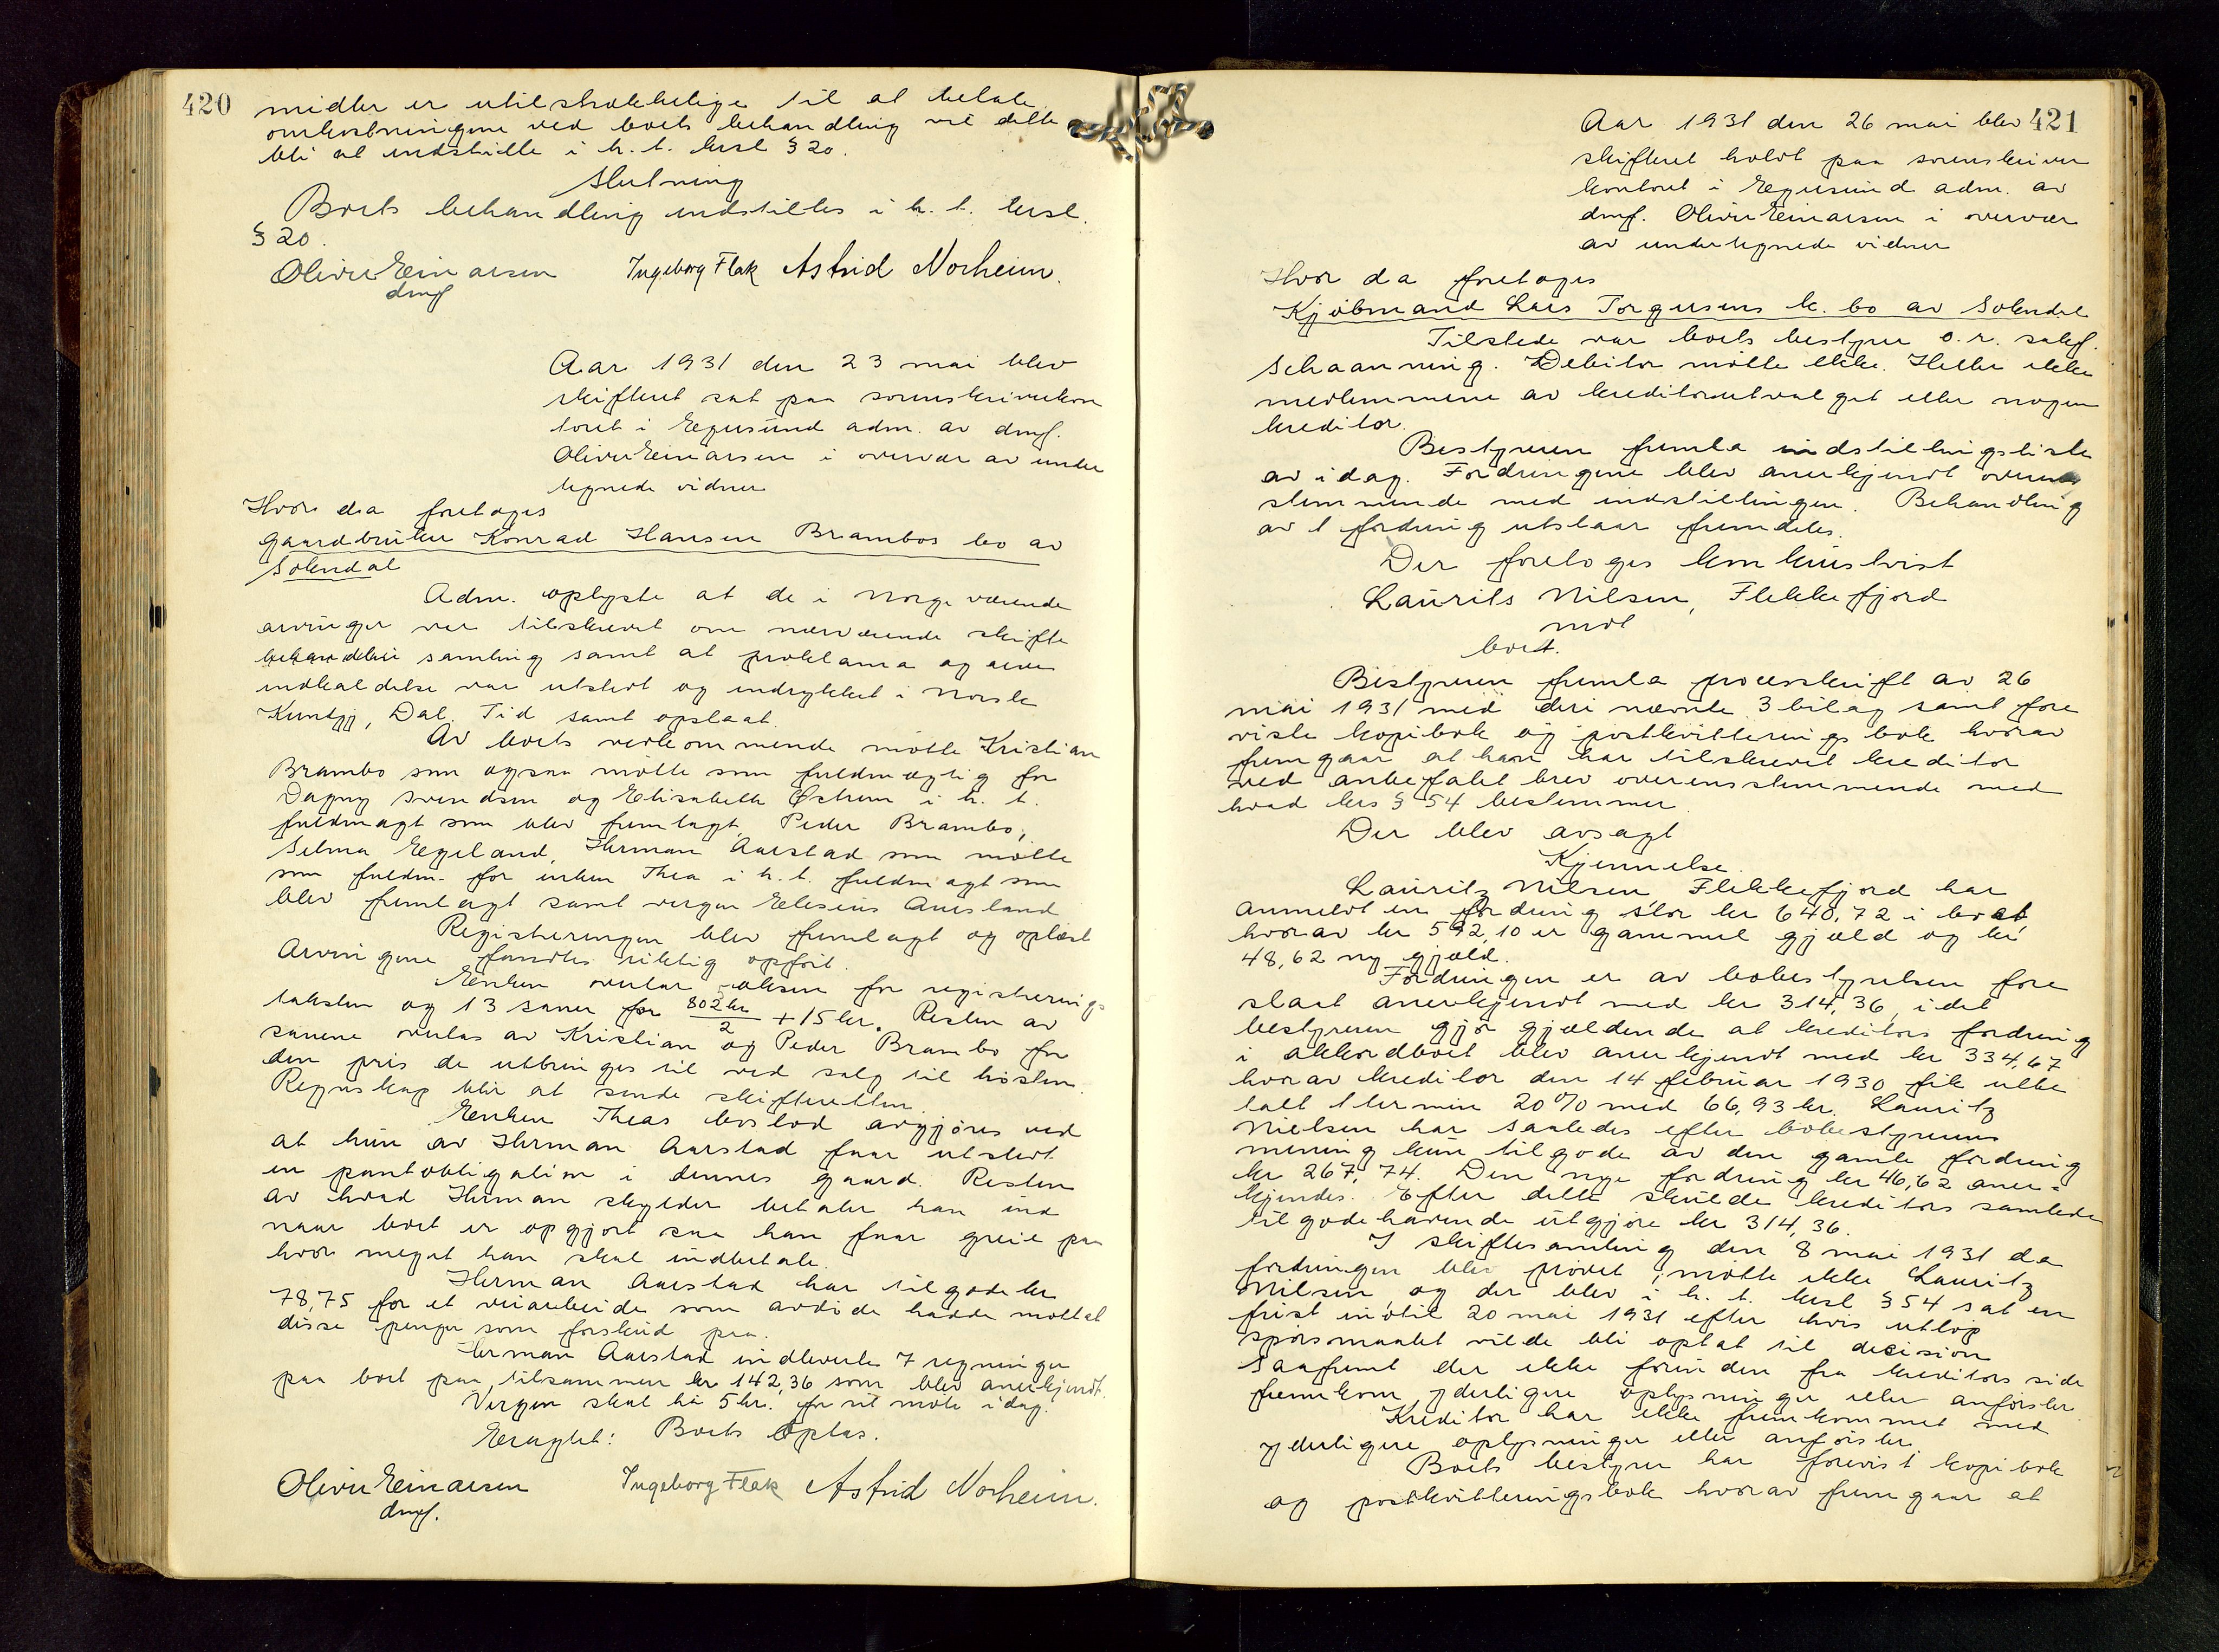 420
midler er utilstrækkelige til at betale
omkostningene ved boets behandling vil dette
bli at indstille i h. t. kksl § 20.
Slutning
Boets behandling indstilles i h. t. kksl.
§ 20.
Oliver Einarsen Ingeborg Flak Astrid Norheim.
dmf
Aar 1931 den 23 mai blev
skifteret sat paa sorenskriverkon
toret i Egersund adm. av dmf.
Oliver Einarsen i overvær av under
tegnede vidner
Hvor da foretoges
gaardbruker Konrad Hansen Brambos bo av
Sokndal
Adm. oplyste at de i Norge værende
arvinger var tilskrevet om nærværende skifte
samling samt at proklama og arve
indkaldelse var utstedt og indrykket i Norsk
Kuntgj, Dal. Tid samt opslaat.
Av boets vedkommende møtte Kristian
Brambo som ogsaa møtte som fuldmægtig for
Dagny Svendsen og Elisabeth Østrem i h. t.
fuldmagt som blev fremlagt, Peder Brambo,
Selma Egeland, Herman Aarstad som møtte
som fuldm. for enken Thea i h. t. fuldmagt som
blev fremlagt samt vergen Elesius Auesland
Registreringen blev fremlagt og oplæst
Arvingene fandtes riktig opført.
Enken overtar oksen for registrerings
taksten og 13 sauer for 802 kr/2 + 15 kr. Resten av
sauene overtas av Kristian og Peder Brambo for
den pris de utbringes til ved salg til høsten.
Regnskap blir at sende skifteretten.
Enken Theas boslod avgjøres ved
at hun av Herman Aarstad faar utstedt
en pantobligation i dennes gaard. Resten
av hvad Herman skylder betaler han ind
naar boet er opgjort saa han faar greie paa
hvor meget han skal indbetale.
Herman Aarstad har tilgode kr
78,75 for et veiarbeide som avdøde hadde mottat
disse penger som forskud paa.
Herman Aarstad indleverte 7 regninger
paa boet paa tilsammen kr 142,36 som blev anerkjendt.
Vergen skal ha 5 kr. for sit møte idag.
Eragtet: Boets optas.
Oliver Einarsen Ingeborg Flak Astrid Norheim.
dmf.
421
Aar 1931 den 26 mai blev
skifteret holdt paa sorenskriver
kontoret i Egersund adm. av
dmf. Oliver Einarsen i overvær
av undertegnede vidner
Hvor da foretoges
Kjøbmand Lars Torgersens k. bo av Sokndal
Tilstede var boets bestyrer o.r. sakf.
Schaanning. Debitor møtte ikke. Heller ikke
medlemmene av kreditorutvalget eller nogen
kreditor.
Bestyreren fremla indstillingsliste
av idag. Fordringene blev anerkjendt overens
stemmende med indstillingen. Behandling
av 1 fordring utstaar fremdeles.
Der foretoges konkurstvist
Laurits Nilsen, Flekkefjord
mot
boet.
Bestyreren fremla prosesskrift av 26
mai 1931 med deri nævnte 3 bilag samt fore
viste kopibok og postkvitteringsbok hvorav
fremgaar at han har tilskrevet kreditor
ved anbefalet brev overensstemmende med
hvad kks § 54 bestemmer.
Der blev avsagt
Kjennelse.
Lauritz Nilsen Flekkefjord har
anmeldt en fordring stor kr 640,72 i boet
hvorav kr 592,10 er gammel gjæld og kr
48,62 ny gjæld.
Fordringen er av bobestyrelsen fore
slaat anerkjendt med kr 314,36, idet
bestyreren gjør gjældende at kreditors fordring
i akkordboet blev anerkjendt med kr 334,67
hvorav kreditor den 14 februar 1930 fik utbe
talt 1 termin 20% med 66,93 kr. Lauritz
Nielsen har saaledes efter bobestyrerens
mening kun tilgode av den gamle fordring
kr 267,74. Den nye fordring kr 46,62 aner-
kjendes. Efter dette skulde kreditors samlede
tilgodehavende utgjøre kr 314,36.
I skiftesamling den 8 mai 1931 da
fordringen blev prøvet, møtte ikke Lauritz
Nilsen, og der blev i h. t. kksl. § 54 sat en
frist indtil 20 mai 1931 efter hvis utløp
spørsmaalet vilde bli optat til decision
saafremt der ikke forinden fra kreditors side
fremkom yderligere oplysninger eller anførsler.
Kreditor har ikke fremkommet med
yderligere oplysninger eller anførsler.
Boets bestyrer har forevist kopibok
og postkvitteringsbok hvorav fremgaar at